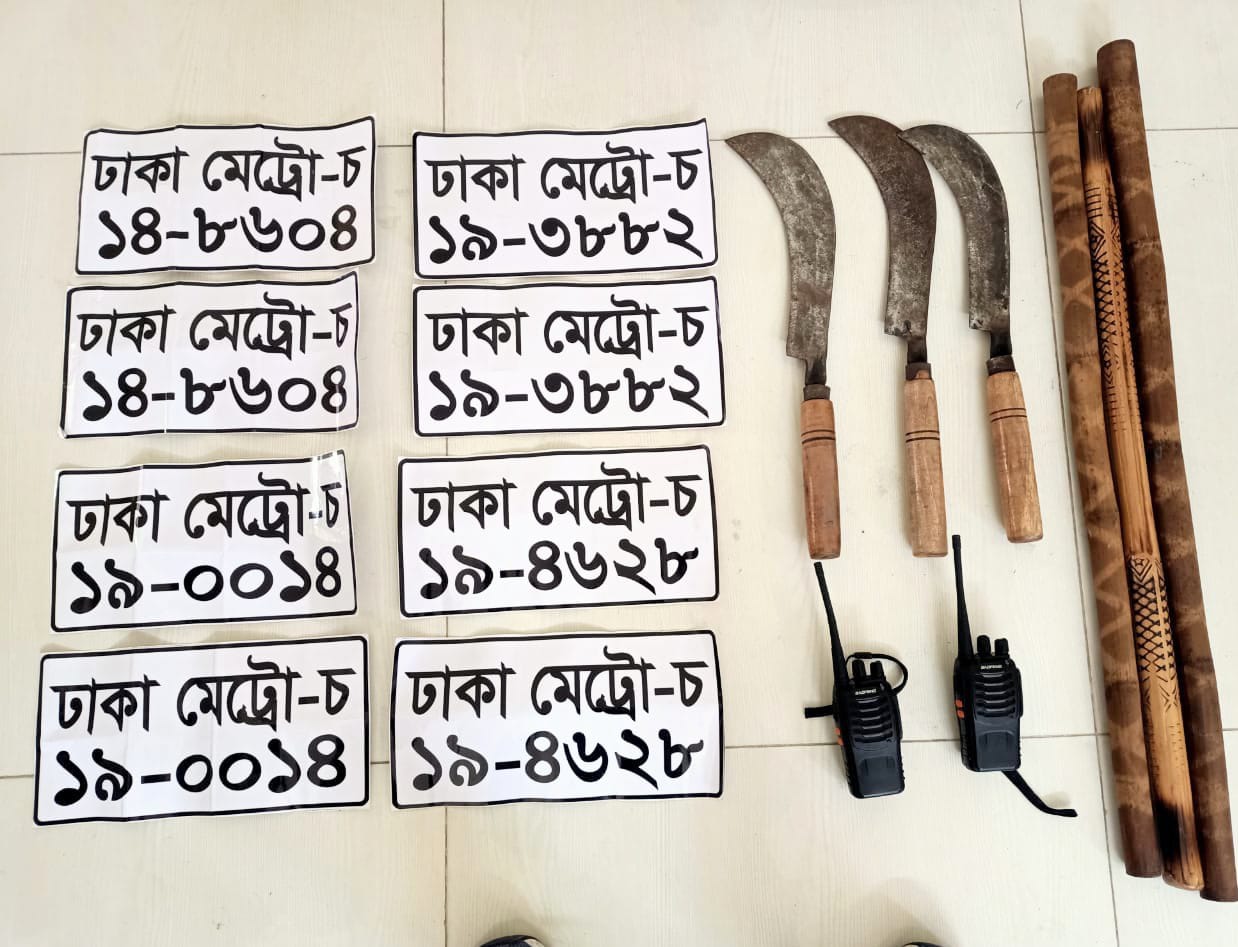 ঢাকা মেট্রো-চ
১৪-৮৬০৪
ঢাকা মেট্রো-চ
১৯-৩৮৮২
ঢাকা মেট্রো-চ
১৪-৮৬০৪
ঢাকা মেট্রো-চ
১৯-৩৮৮২
ঢাকা মেট্রো-চ
১৯-০০১৪
ঢাকা মেট্রো-চ
১৯-৪৬২৮
ঢাকা মেট্রো-চ
১৯-০০১৪
ঢাকা মেট্রো-চ
১৯-৪৬২৮
BAOFENG
BAOFENG